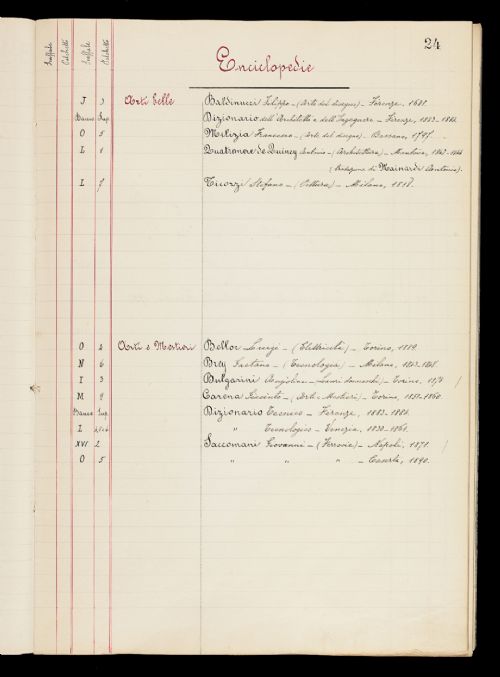 24
Scaffale Palchetti Scaffale Palchetti
Enciclopedie
I 3 Arti belle Baldinucci Filippo - (Arte del disegno) - Firenze, 1681.
Banco Sup. Dizionario dell'Architetto e dell'Ingegnere - Firenze, 1883-1884.
O 5 Milizia Francesco - (Arte del disegno) - Bassano, 1797.
L 1 Quatremere de Quincy Antonio - (Architettura) - Mantova, 1842-1844
(traduzione di Mainardi Antonio).
L 7 Ticozzi Stefano - (Pittura) - Milano, 1818.
O 2 Arti e Mestieri Bellor Luigi - (Elettricità) - Torino, 1889.
N 6 Brey Gaetano - (Tecnologia) - Milano, 1843-1848.
I 3 Bulgarini Angiolino - Torino, 1874
M 9 Carena Giacinto - (Arti e Mestieri) - Torino, 1851-1860.
Banco Sup. Dizionario Tecnico - Firenze, 1883-1884.
L " Tecnologico - Venezia, 1830-1861.
XVI 2 Saccomani Giovanni - (Ferrovie) - Napoli, 1871.
O 5 " " " - Caserta, 1890.